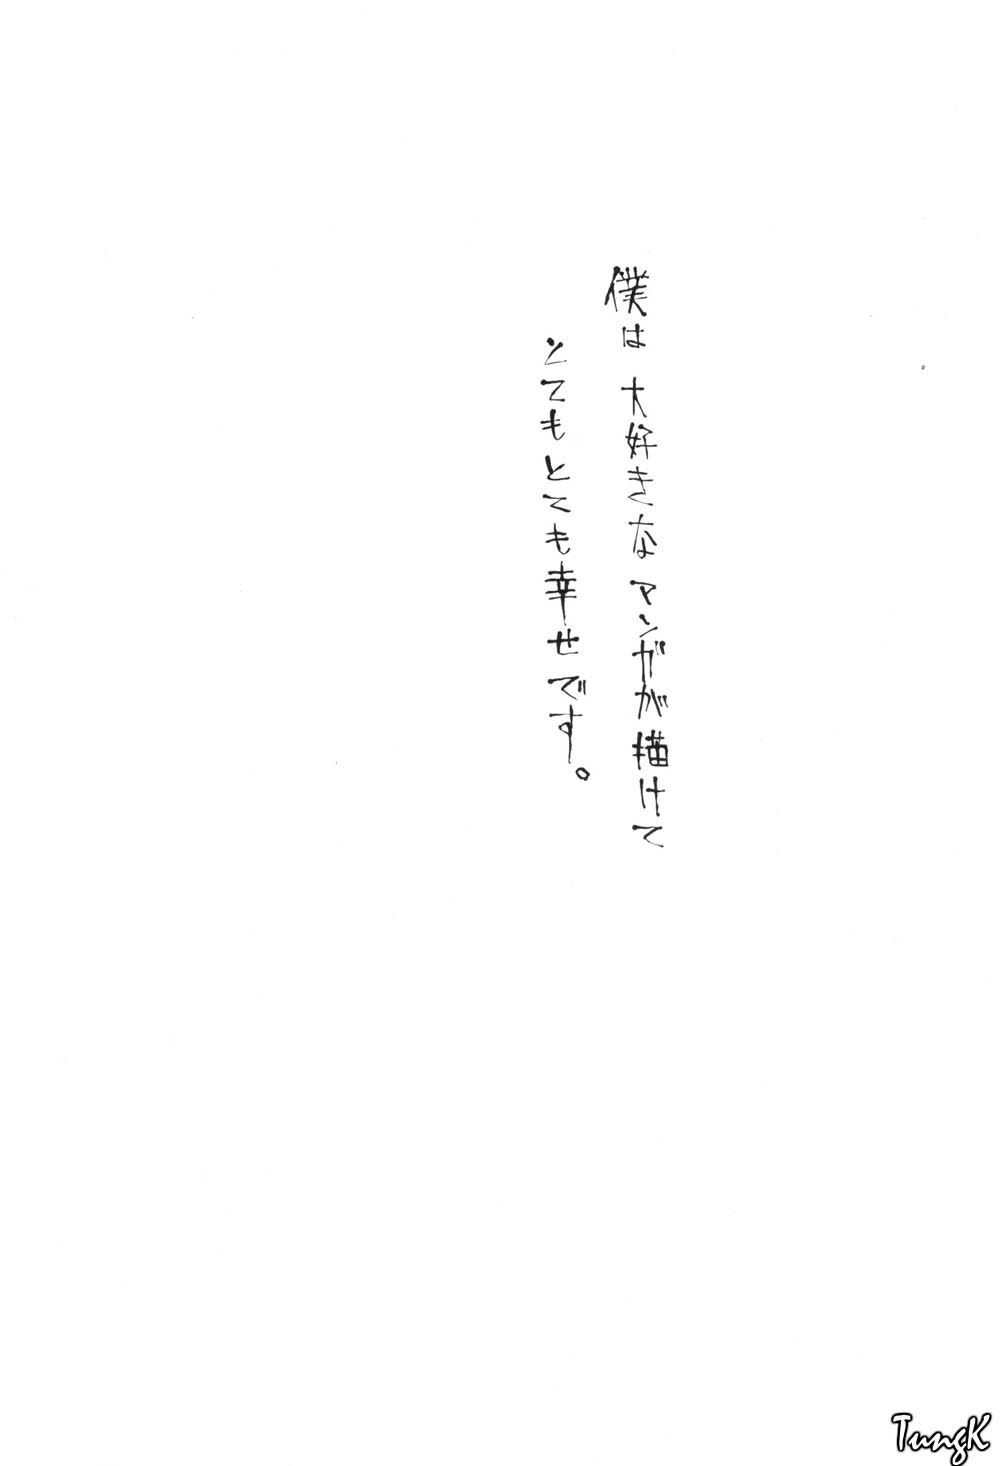 僕は 大好きな マンガが描けて
とてもとても幸せです。
TungK